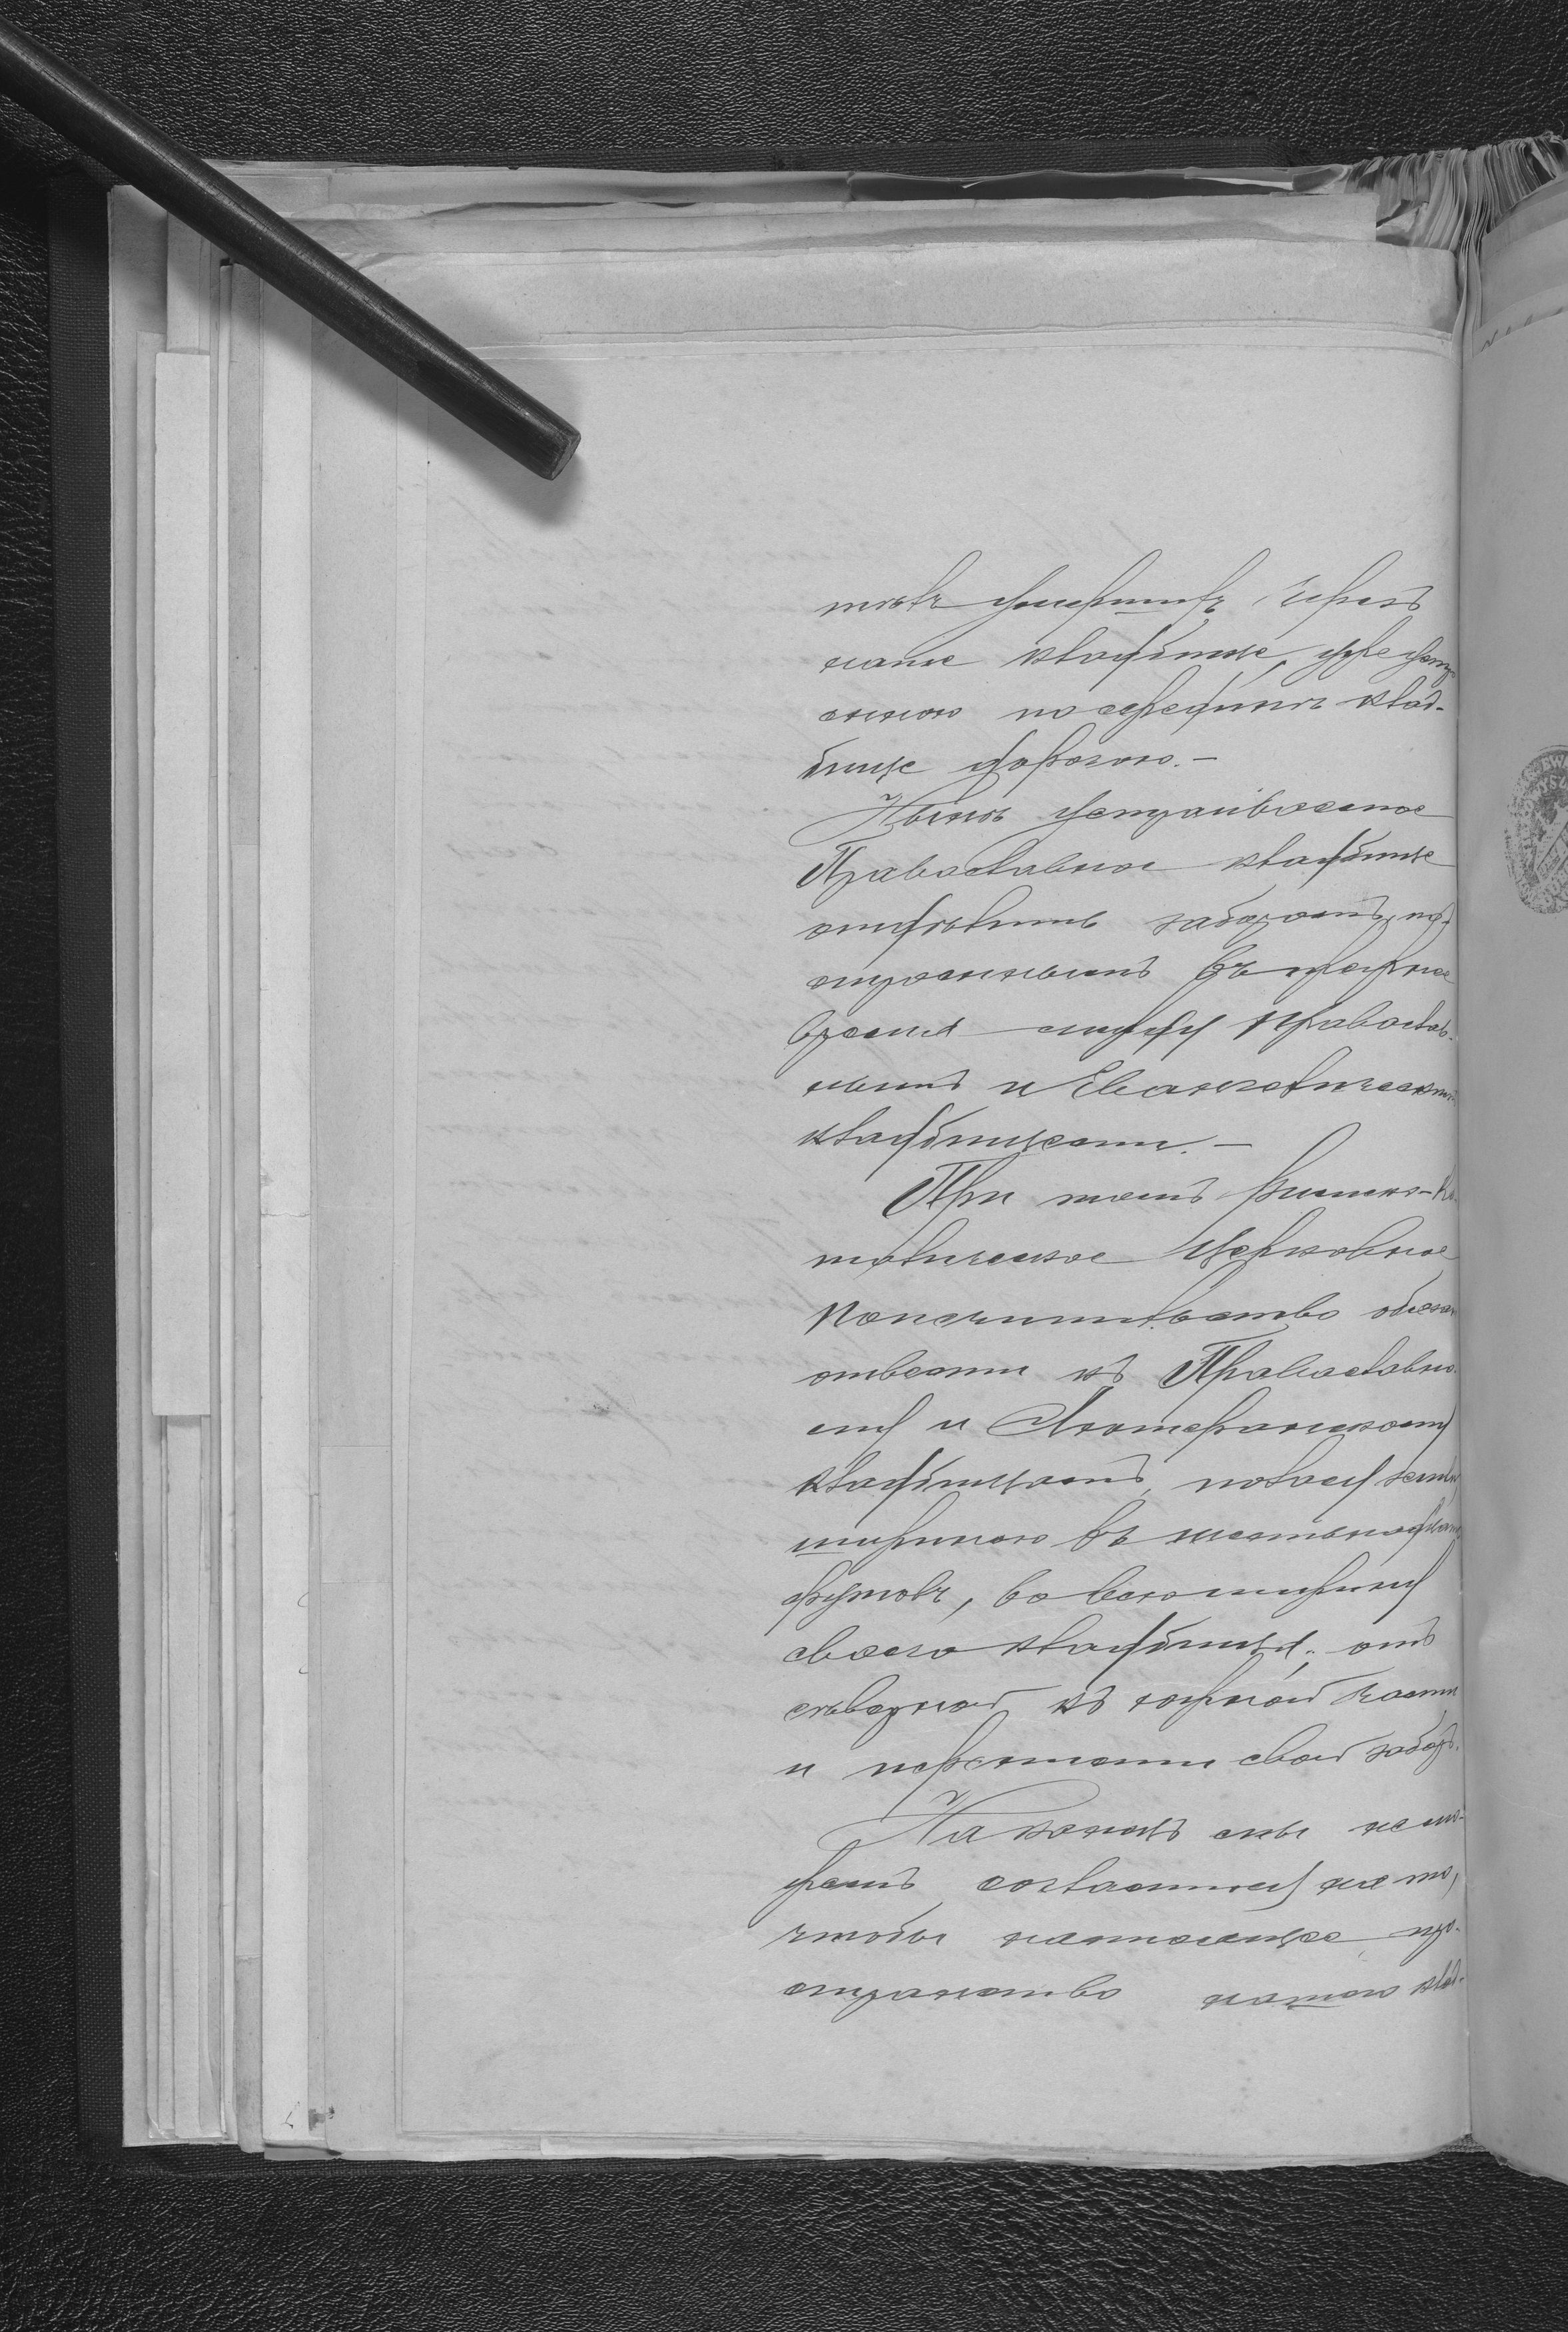 тѣлъ умершихъ, чрезъ
наше кладбище, уже устро-
енною по серединѣ клад-
бище дорогою. —
Нынѣ устраиваемое
Православное кладбище
отдѣлить заборомъ,
строеннымъ въ прежнее
время между Православ-
нымъ и Евангелическимъ
кладбищами. —
При томъ Римско-Ка-
толическое Церковное
Попечительство обязано
отвести къ Православно-
му и Лютеранскому
кладбищамъ, полосу земли
шириною въ шестьнадцать
футовъ, во всю ширину
своего кладбища, отъ
сѣверной къ южной части
и перенести свой заборъ.
На конецъ мы не мо-
жемъ согласиться на то,
чтобы настоящее про-
странство нашего клад-